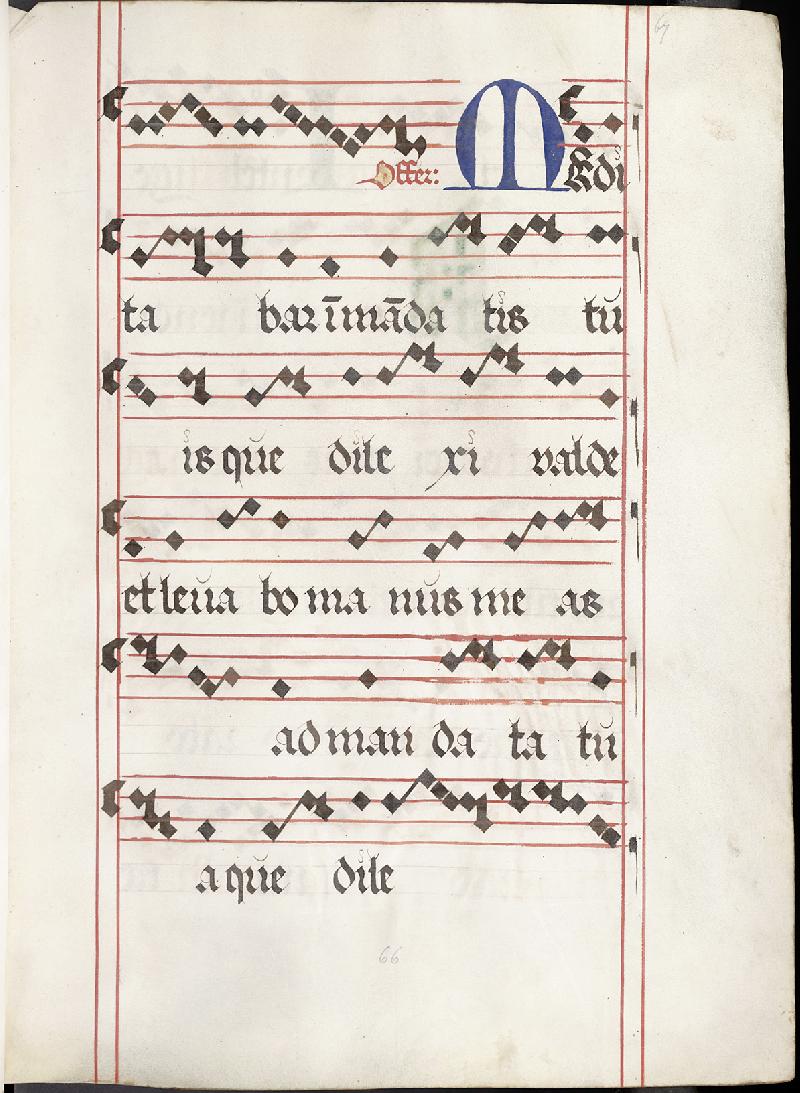 67
Offer: MEdi
ta bar ī mādа tis tu
is que dile xi valde
et leua bo ma nus me as
ad man da ta tu
a que dile
66